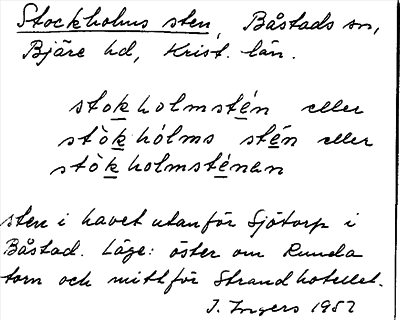 Stockholms sten, Båstads sn,
Bjäre hd, Krist. län.
stokholmstén eller
stòkhólms stén eller
stòkholmsténen
sten i havet utanför Sjötorp i
Båstad. Läge: öster om Runda
torn och mittför Strandhotellet.
J. Ingers 1957